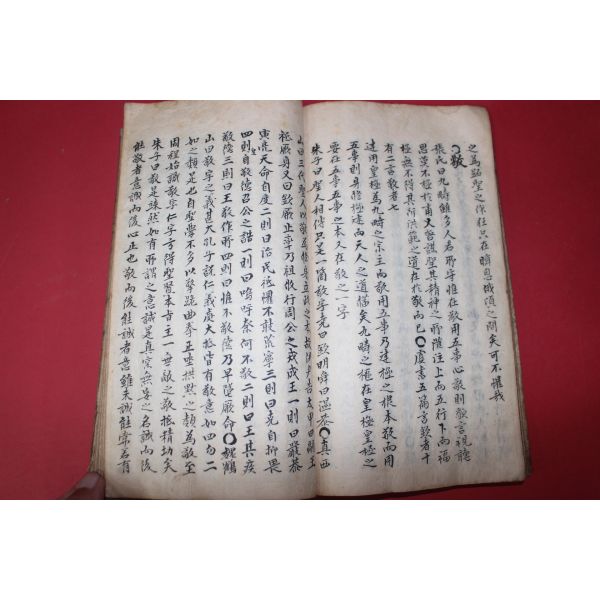 之爲聖之作狂只在瞬息俄頃之間矣可不懼哉
○敬
張氏曰九疇雖多人君所守惟在敬用五事心敬則貌言視聽
思莫不極於肅乂哲謀聖其精神之所上而五行下而福
極無不得其所洪範之道在於敬而已○虞書五篇言欽者十
有二言敬者七
建用皇極爲九疇之宗主而敬用五事乃建極之根本敬而用
五事則身極建而天人之道備矣九疇之樞在皇極皇極之
要在五事五事之本又在敬之一字
朱子曰聖人相傳只是一箇敬字堯曰欽明舜曰溫恭○真西
山曰三代聖人以敬爲
祗厥身又曰欽厥止率乃祖攸行周公之戒成王一則曰嚴恭
寅畏天命自度二則曰治民祗懼不敢荒寧三則曰克自抑畏
四則自敬德召公之誥一則曰嗚呼奈何不敬二則曰王其疾
敬德三則曰王敬作所四則曰惟不敬德乃早墜厥命○
山曰敬字之義甚大孔子說仁義處大抵皆有敬意如四勿二
如之類是也自聖學不多以擎跽曲拳正坐拱默之類爲敬至
因程始識敬字仁字言得聖賢本旨主一無敵之敬抵精切矣
朱子曰敬是竦然如有所謂之意誠是真實無妄之名誠而後
能敬者意誠而後心正也敬而後能誠者意雖未誠能常若有